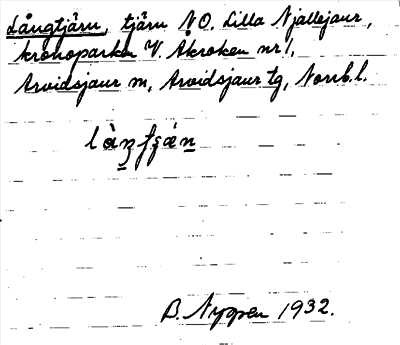 Långtjärn, tjärn NO. Lilla Njallejaur,
kronoparken V. Åkroken nr 1,
Arvidsjaur sn, Arvidsjaur tg, Norrb. l.
B. Nygren 1932.